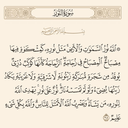 سورة النور
الله نور السموت والأرض مثل نوره كمشكوة فيها
مصباح المصباح في زجاجة الزجاجة كأنها كوكب دري
يوقد من شجرة مبركة زيتونة لا شرقية ولا غربية يكاد
زيتها يضيء ولو لم تمسسه نار نور على نور يهدي الله
لنوره من يشاء ويضرب الله الأمثل للناس والله بكل شيء
عليم